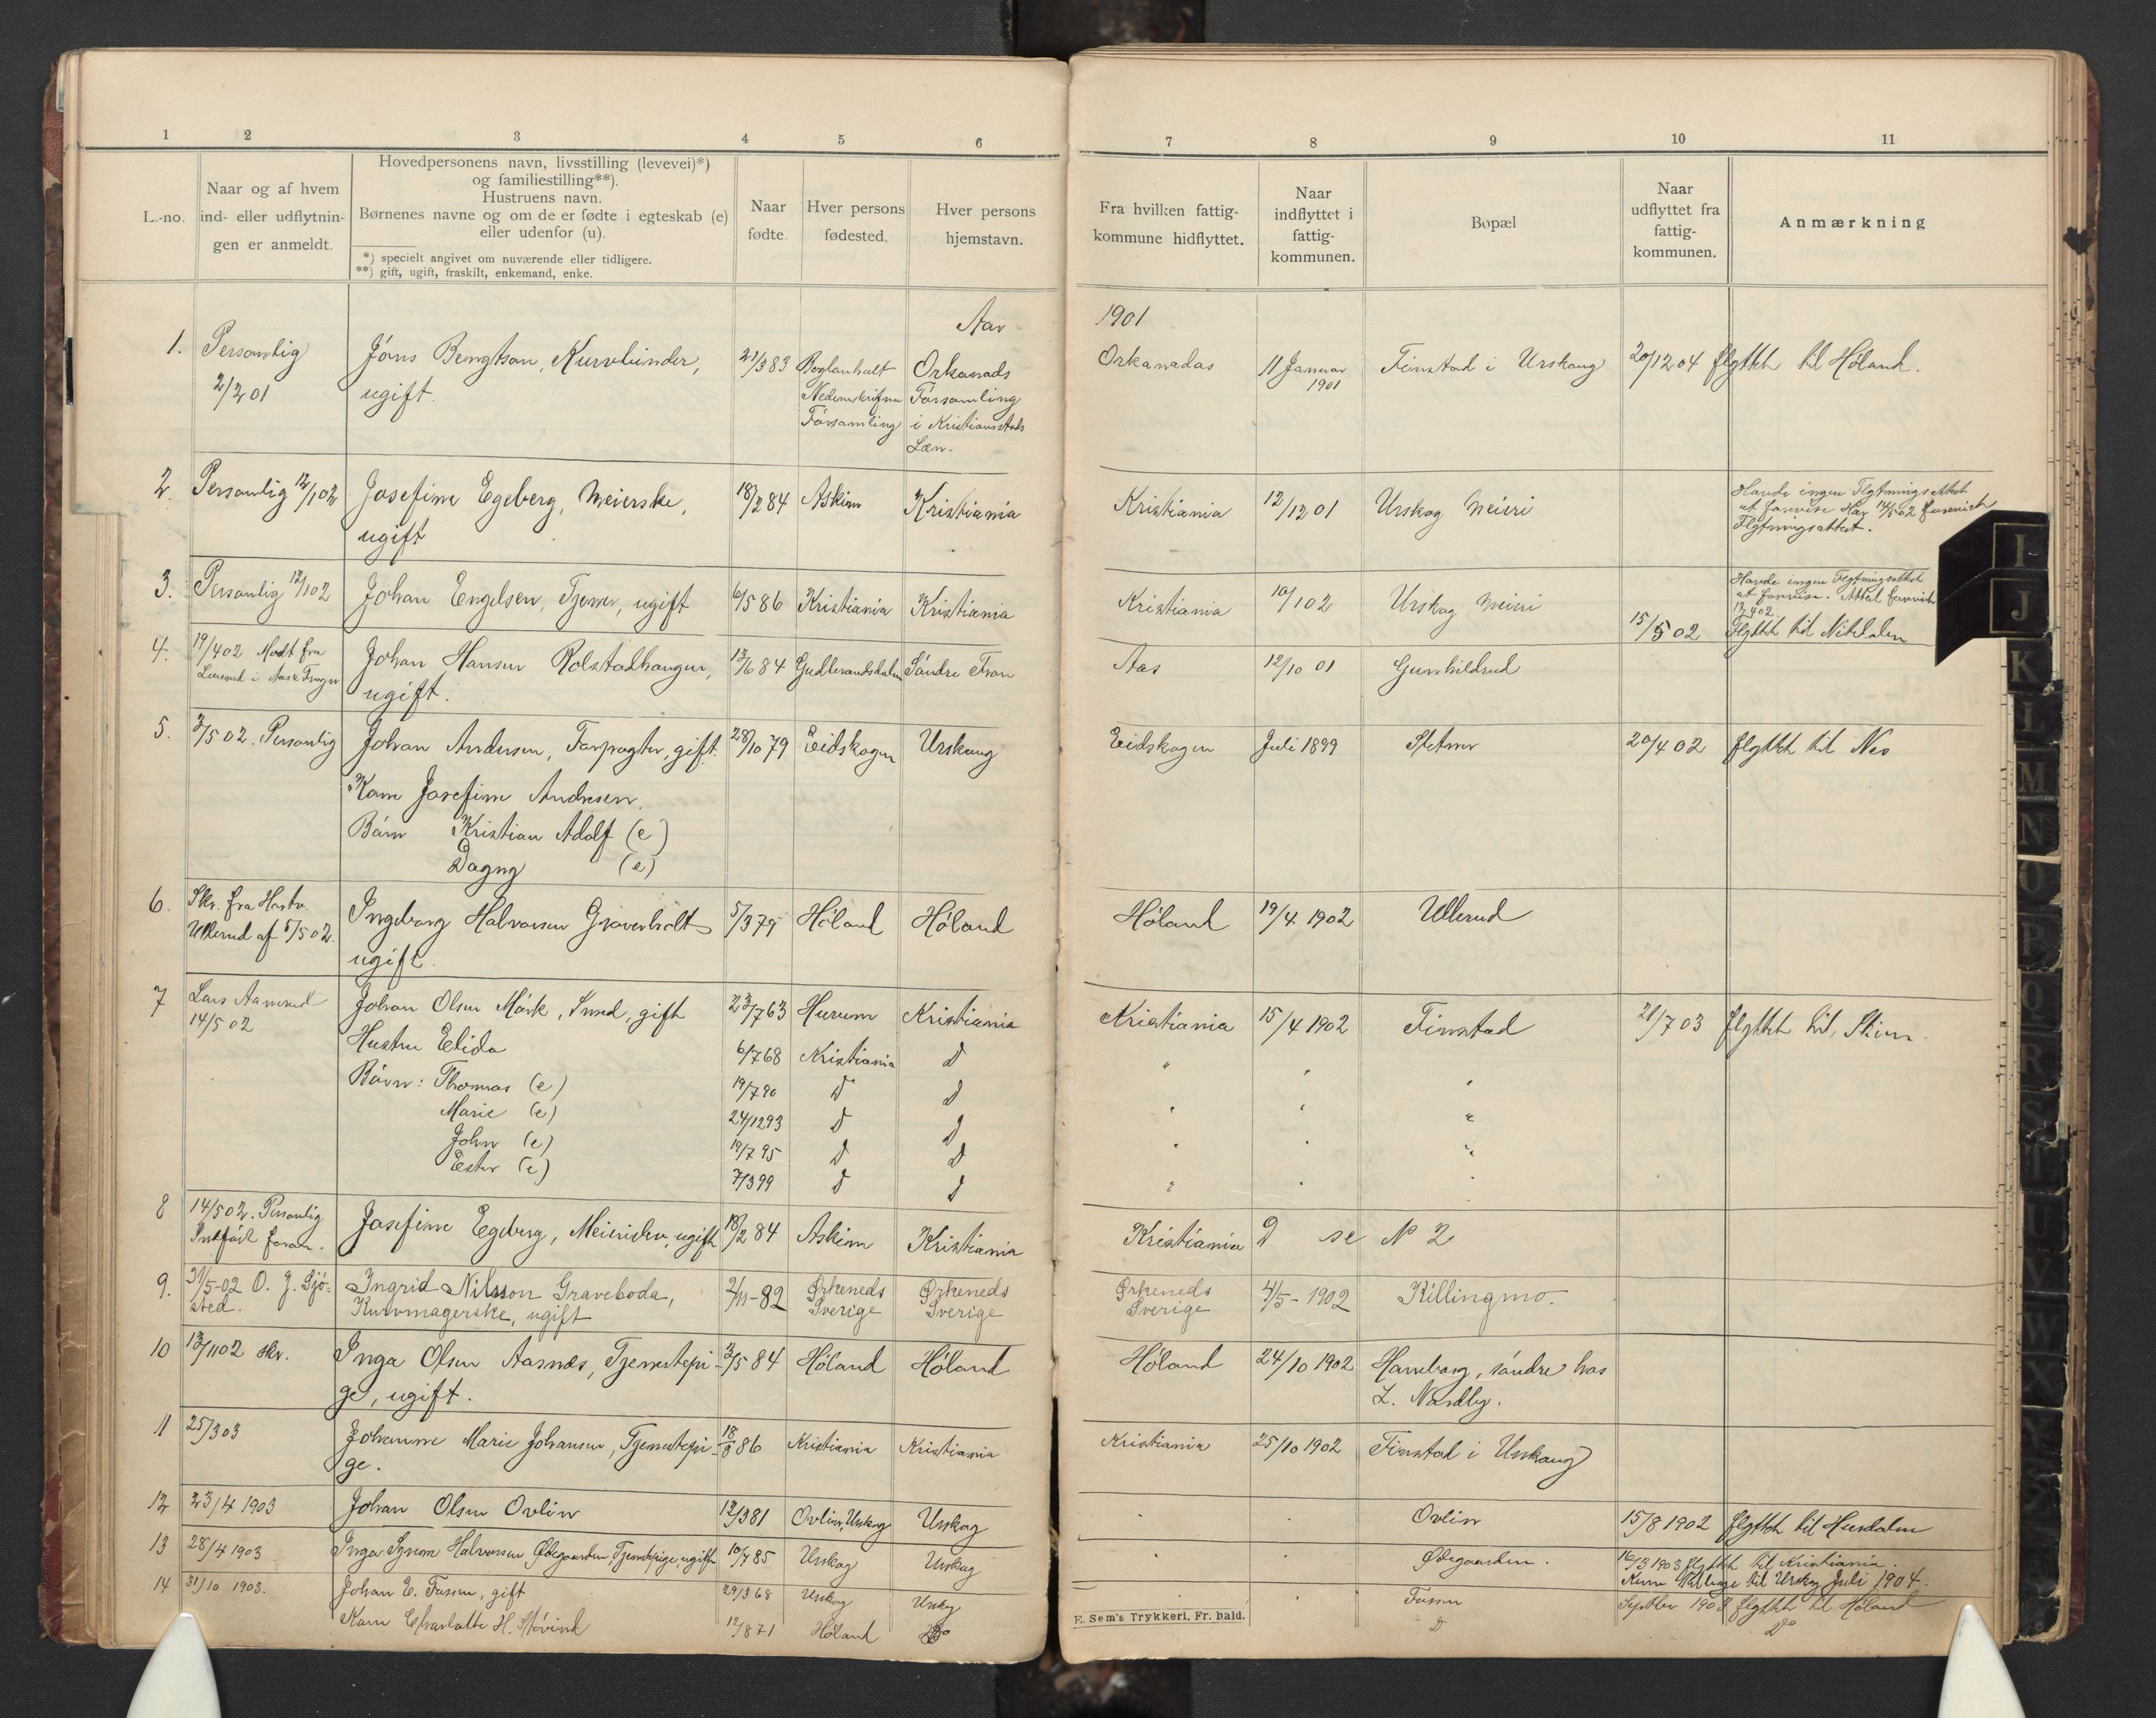 1 2 3 4 5 6
L.-no.
Naar og af hvem
ind- eller udflytnin-
gen er anmeldt.
Hovedpersonens navn, livsstilling (levevei)*)
og familiestilling**).
Hustruens navn.
Børnenes navne og om de er fødte i egteskab (e)
eller udenfor (u).
*) specielt angivet om nuværende eller tidligere.
**) gift, ugift, fraskilt, enkemand, enke.
Naar
fødte.
Hver persons
fødested.
Hver persons
hjemstavn.
Aar
1. Personlig Jöns Bengtson, Kurvbinder, 21/3 83 Orkanads
2/2 01 ugift. Församling
Församling i Kristianstads
Læn.
2. Personlig 12/1 02 Josefine Egeberg, Meierske, 18/2 84 Askim Kristiania
ugift
3. Personlig 12/1 02 Johan Engelsen, Tjener, ugift 6/5 86 Kristiania Kristiania
4. 19/4 02 Modt fra Johan Hansen Rolstadhaugen, 13/6 84 Gudbrandsdalen Søndre Fron
ugift.
5. 3/5 02. Personlig Johan Andersen, Forpagter, gift. 28/10 79 Eidskogen Urskaug
Kone Josefine Andresen.
Børn Kristian Adolf (e)
Dagny (e)
6. Skr. fra
Ullerud af 5/5 02. Ingeborg Halvorsen Graverholt 5/3 79 Høland Høland
ugift.
7 Lars Aamrud Johan Olsen Mörk, Smed, gift 23/7 63 Hurum Kristiania
14/5 02 Hustru Elida 6/7 68 Kristiania D
Börn: Thomas (e) 19/7 90 D D
Marie (e) 24/12 93 D D
John (e) 19/7 95 D D
Ester (e) 7/3 99 D D
8 14/5 02. Personlig Josefine Egeberg, ugift 18/2 84 Askim Kristiania
Indført foran.
9. 31/5-02 O. J. Sjö- Ingrid Nilsson Graveboda, 2/11-82 Ørkeneds Ørkeneds
sted. Kurvmagerske, ugift Sverige Sverige
10 13/11 02 skr. Inga Olsen Aasnæs, Tjenestepi- 3/5 84 Høland Høland
ge, ugift.
11 25/3 03 Johanne Marie Johansen, Tjenestepi- 86 Kristiania Kristiania
ge.
12 23/4 1903 Johan Olsen Ovlien 12/3 81 Ovlien, Urskog Urskog
13 28/4 1903 Inga Halvorsen Ødegaarden, Tjenestepige, ugift 10/7 85 Urskog Urskog
14 31/10 1903. Johan E. Fossen, gift 29/3 68 Urskog Urskog
Kone Charlotte H. 12/8 71 Høland Do
7 8 9 10 11
Fra hvilken fattig-
kommune hidflyttet.
Naar
indflyttet i
fattig-
kommunen.
Bopæl
Naar
udflyttet fra
fattig-
kommunen.
Anmærkning
1901
Orkanadas 11 Januar Finstad i Urskaug 20/12 04 flyttet til Høland.
1901
Kristiania 12/12 01 Urskog Meieri
Havde ingen Flytningsattest
at forevise. Har 14/5 02 forevist
Flytningsattest.
Kristiania 10/1 02 Urskog Meieri
Havde ingen Flytningsattest
at forevise. Attest forevist
15/5 02 Flyttet til Nitedalen
Aas 12/10 01 Gunhildrud
Eidskogen Juli 1899 20/4 02 flyttet til Nes
Høland 19/4 1902 Ullerud
Kristiania 15/4 1902 Finstad 21/7 03 flyttet til Skien
" " "
" " "
" " "
" " "
Kristiania D se No 2
Ørkeneds 4/5-1902 Killingmo.
Sverige
Høland 24/10 1902 Haneborg, søndre hos
L. Nordby.
Kristiania 25/10 1902 Finstad i Urskaug
Ovlien 15/8 1902 flyttet til Hurdalen
Ødegaarden. 16/3 1903 flyttet til Kristiania.
Kom tilbage til Urskog Juli 1904.
Fossen Septber 1903 flyttet til Høland
D Do
E. Sem's Trykkeri, Fr. hald.
I
J
K
L
M
N
O
P
Q
R
S
T
U
V
W
X
Y